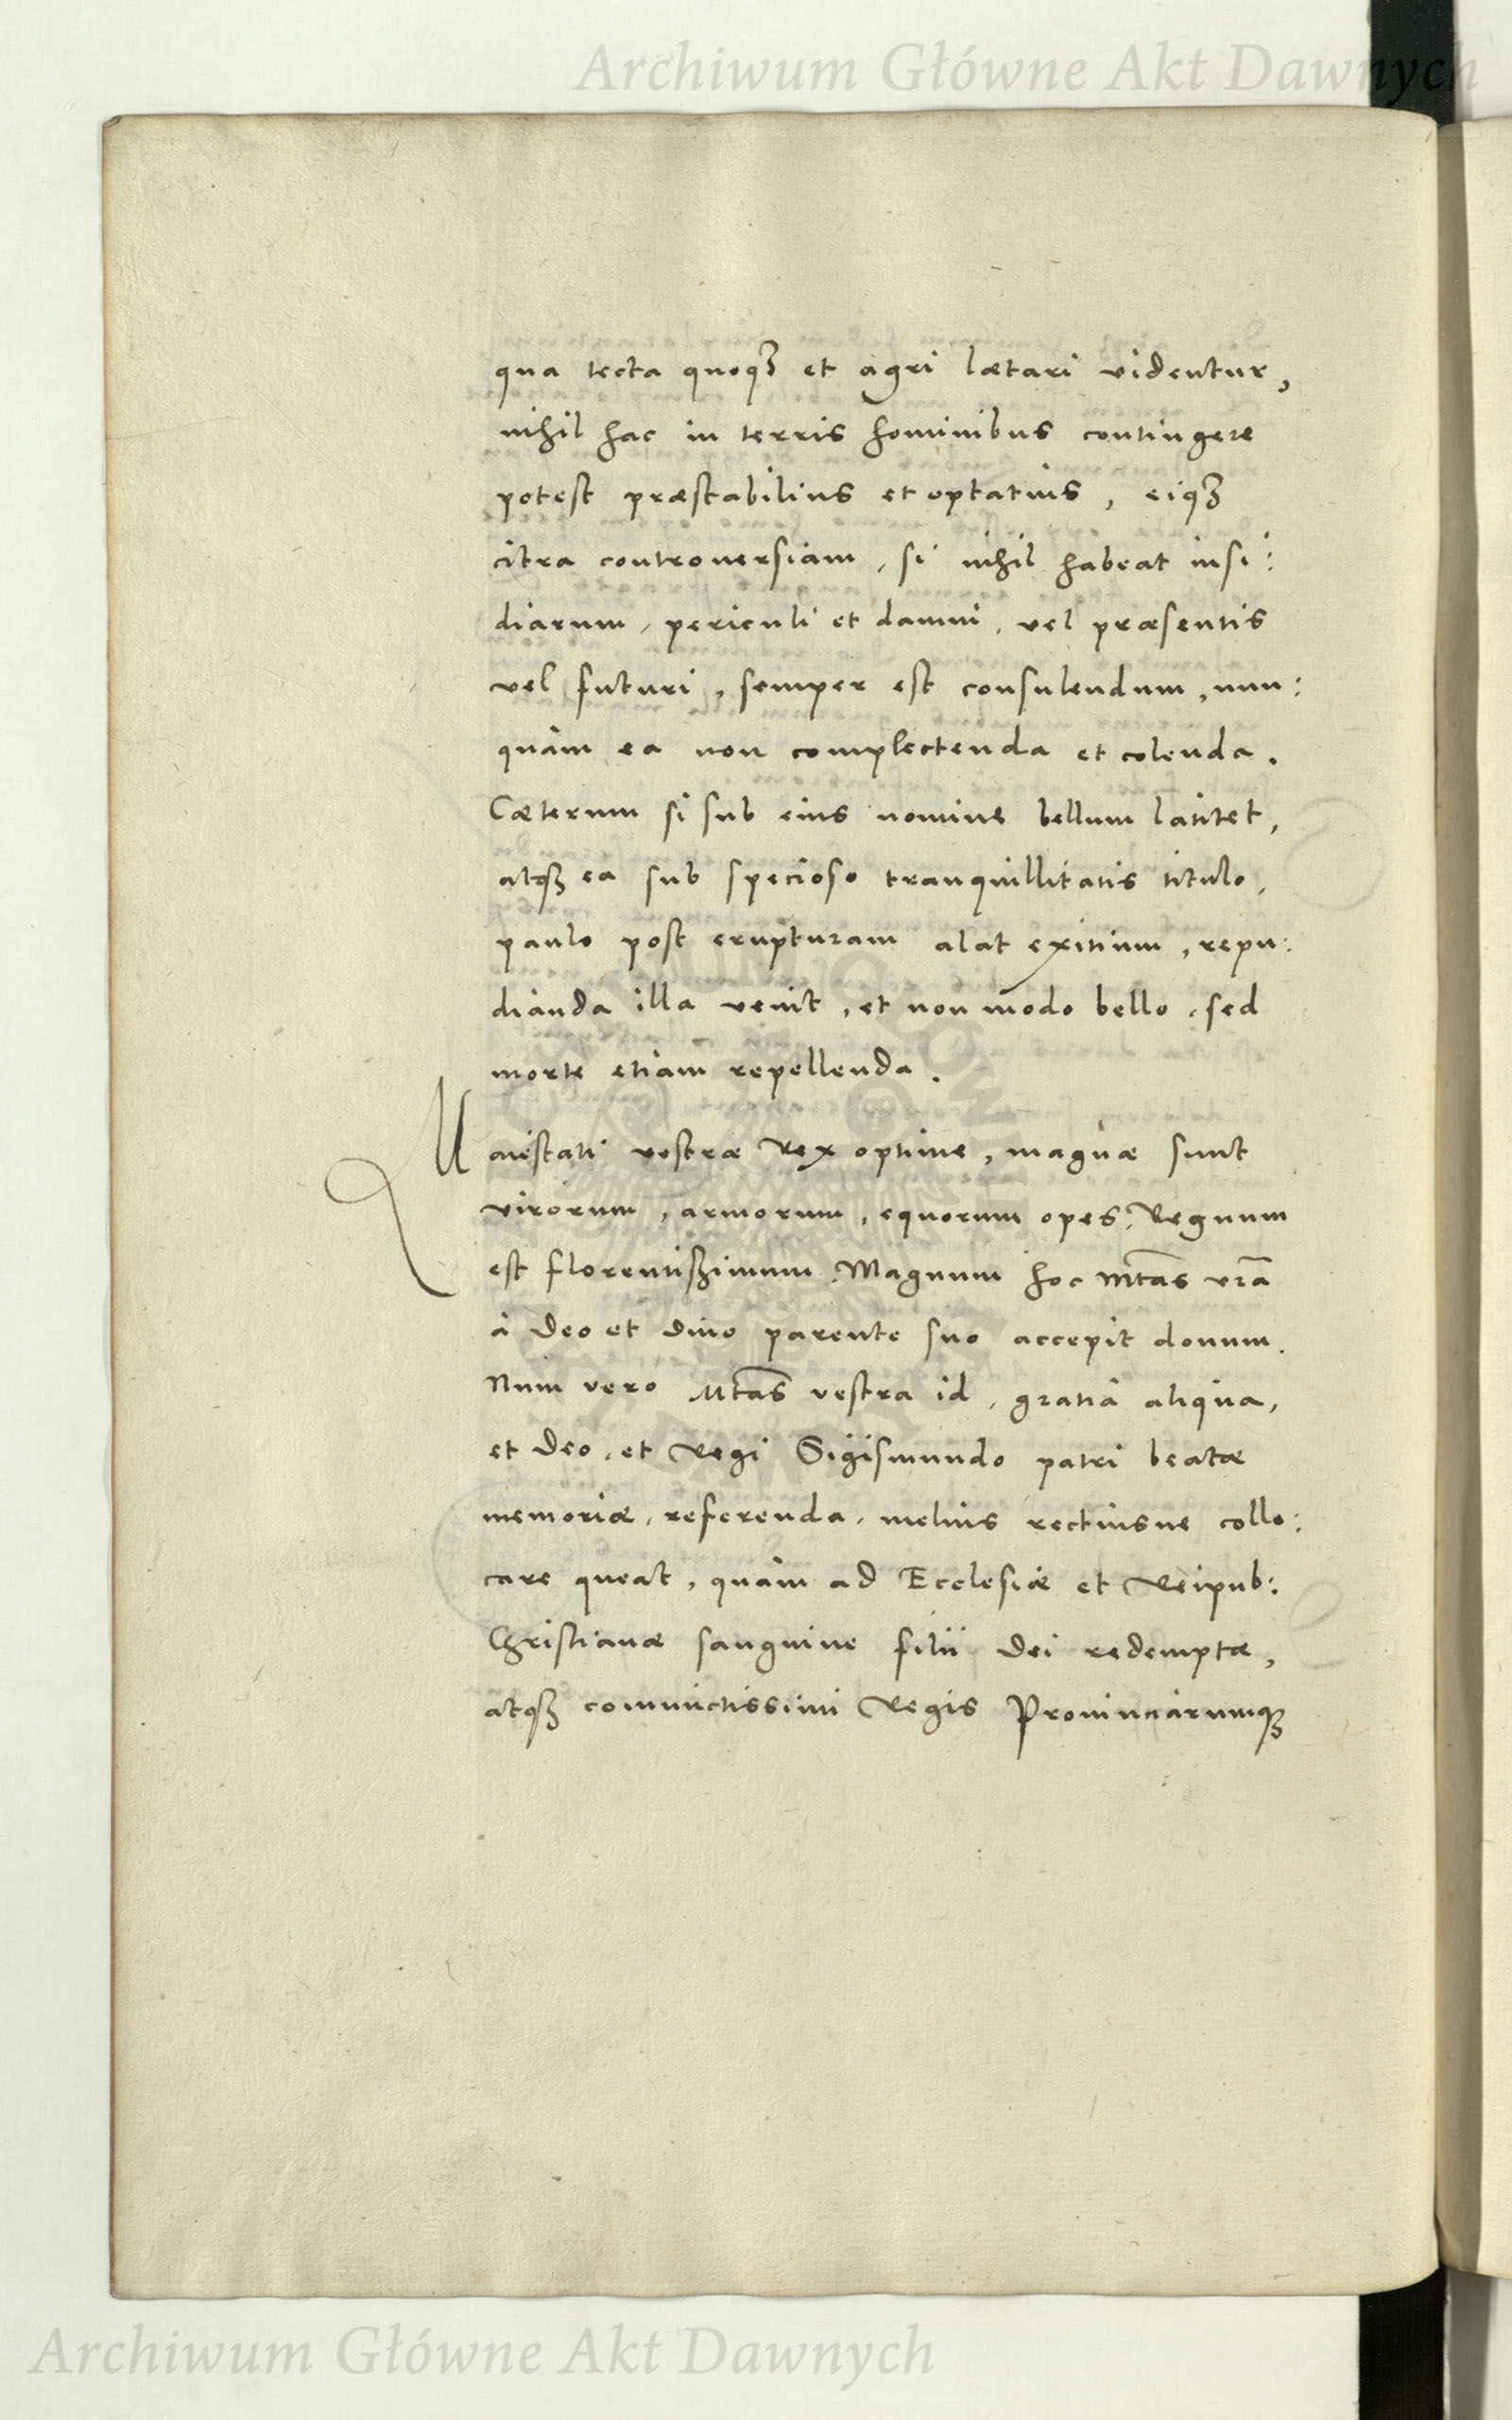 Archiwum Główne Akt Dawnych
qua tecta quoqȝ et agri lætari videntur,
nihil hac in terris hominibus contingere
potest præstabilius et optatius, eiqȝ
citra controuersiam, si nihil habeat insi:
diarum, periculi et damni, vel præsentis
vel futuri, semper est consulendum, nun:
quàm ea non complectenda et colenda.
Cæterum si sub eius nomine bellum latitet,
atqȝ ea sub specioso tranquillitatis titulo,
paulo post erupturam alat exitium, repu:
dianda illa venit, et non modo bello, sed
morte etiam repellenda.
Maiestati vestræ Rex optime, magnæ sunt
virorum, armorum, equorum opes, Regnum
est florentißimum. Magnum hoc Mtas vra
à Deo et diuo parente suo accepit donum.
Num vero Mtas vestra id, gratia aliqua,
et Deo, et Regi Sigismundo patri beatæ
memoriæ, referenda, melius rectiusue collo:
care queat, quàm ad Ecclesiæ et Reipub:
Christianæ sanguine filii Dei redemptæ,
atqȝ coniunctissimi Regis Prouinciarumqȝ
Archiwum Główne Akt Dawnych